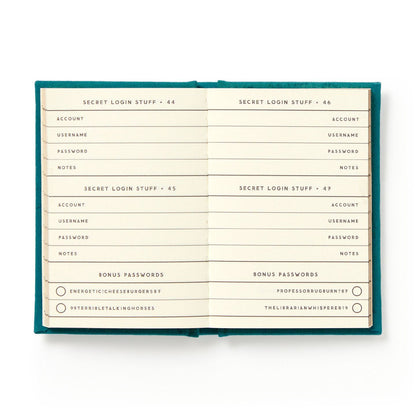 SECRET LOGIN STUFF • 44
ACCOUNT
USERNAME
PASSWORD
NOTES
SECRET LOGIN STUFF • 45
ACCOUNT
USERNAME
PASSWORD
NOTES
BONUS PASSWORDS
ENERGETIC(CHEESEBURGERS)7
99TERRIBLETALKINGHORSES
SECRET LOGIN STUFF • 46
ACCOUNT
USERNAME
PASSWORD
NOTES
SECRET LOGIN STUFF • 47
ACCOUNT
USERNAME
PASSWORD
NOTES
BONUS PASSWORDS
THELIBRARIANWHISPERER19